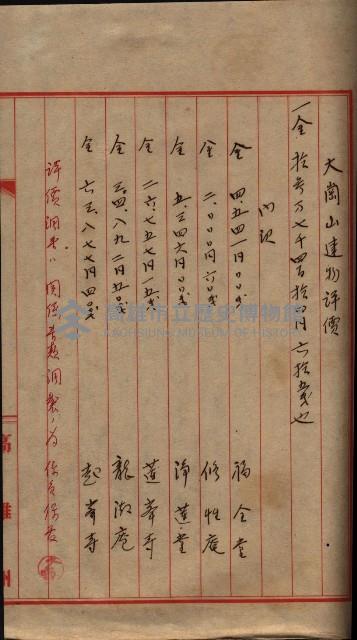 大崗山建物評價
一金 拾參万七千四百拾四円六拾五戔也
内訳
金 四、五四一円〇〇戔 福全堂
金 二、〇〇〇円六〇戔 修性庵
金 五、三四六円〇〇戔 淨蓮堂
金 二六、七五七円一五戔 蓮峯寺
金 三四、八九二円五〇戔 龍湖庵
金 六三、八七七円四〇戔 超峯寺
評價調書ハ関係書類調製ノ為
高雄州
高雄市立歷史博物館
KAOHSIUNG MUSEUM OF HISTORY